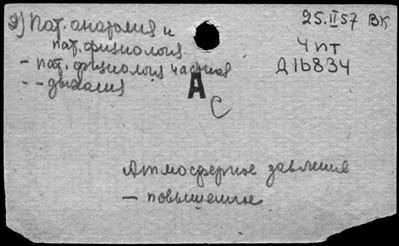 2) Пат. анатомия и
пат. физиология
- пат. физиология частная
- - дыхания
25.II 57 ВК
4 пт
Д16834
А
С
Атмосферное давление
— повышенное